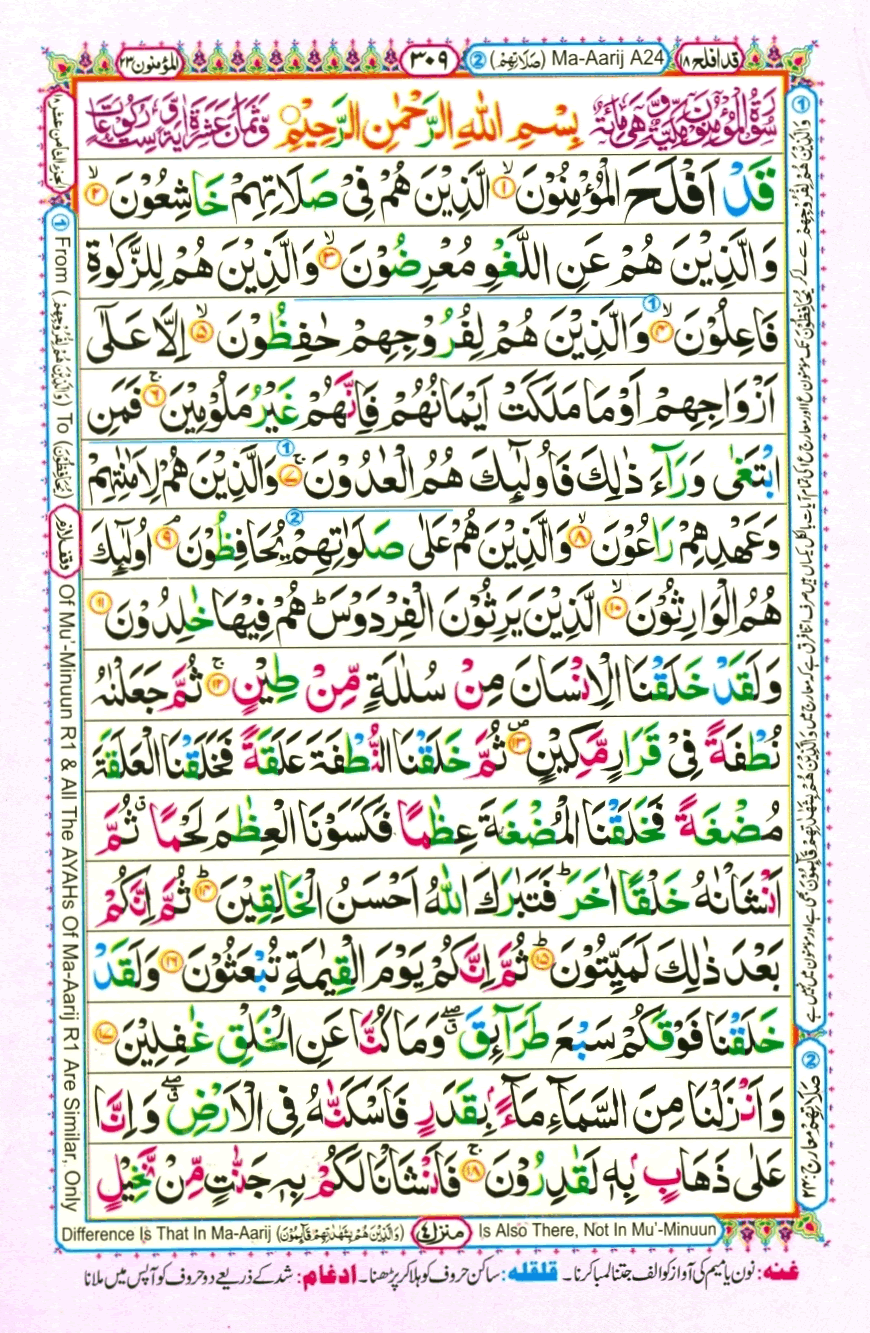 قد افلح ۱۸
Ma-Aarij A24 (صَلَاتِهِمْ) ②
۳۰۹
المؤمنون ۲۳
سُوْرَةُ الْمُؤْمِنُوْنَ مَكِّيَّةٌ وَّهِيَ مِائَةٌ
بِسْمِ اللّٰهِ الرَّحْمٰنِ الرَّحِيْمِ
وَّثَمَانَ عَشَرَةَ اٰيَةً وَّسِتُّ رُكُوْعَاتٍ
قَدْ اَفْلَحَ الْمُؤْمِنُوْنَ ۙ﴿۱﴾ الَّذِيْنَ هُمْ فِيْ صَلَاتِهِمْ خَاشِعُوْنَ ۙ﴿۲﴾
وَالَّذِيْنَ هُمْ عَنِ اللَّغْوِ مُعْرِضُوْنَ ۙ﴿۳﴾ وَالَّذِيْنَ هُمْ لِلزَّكٰوةِ
فَاعِلُوْنَ ۙ﴿۴﴾ ① وَالَّذِيْنَ هُمْ لِفُرُوْجِهِمْ حٰفِظُوْنَ ۙ﴿۵﴾ اِلَّا عَلٰٓى
اَزْوَاجِهِمْ اَوْ مَا مَلَكَتْ اَيْمَانُهُمْ فَاِنَّهُمْ غَيْرُ مَلُوْمِيْنَ ۚ﴿۶﴾ فَمَنِ
ابْتَغٰى وَرَآءَ ذٰلِكَ فَاُولٰٓئِكَ هُمُ الْعٰدُوْنَ ۚ﴿۷﴾ ① وَالَّذِيْنَ هُمْ لِاَمٰنٰتِهِمْ
وَعَهْدِهِمْ رَاعُوْنَ ۙ﴿۸﴾ ② وَالَّذِيْنَ هُمْ عَلٰى صَلَوٰتِهِمْ يُحَافِظُوْنَ ۘ﴿۹﴾ اُولٰٓئِكَ
هُمُ الْوَارِثُوْنَ ۙ﴿۱۰﴾ الَّذِيْنَ يَرِثُوْنَ الْفِرْدَوْسَ ؕ هُمْ فِيْهَا خٰلِدُوْنَ ﴿۱۱﴾
وَلَقَدْ خَلَقْنَا الْاِنْسَانَ مِنْ سُلٰلَةٍ مِّنْ طِيْنٍ ۚ﴿۱۲﴾ ثُمَّ جَعَلْنٰهُ
نُطْفَةً فِيْ قَرَارٍ مَّكِيْنٍ ۪﴿۱۳﴾ ثُمَّ خَلَقْنَا النُّطْفَةَ عَلَقَةً فَخَلَقْنَا الْعَلَقَةَ
مُضْغَةً فَخَلَقْنَا الْمُضْغَةَ عِظٰمًا فَكَسَوْنَا الْعِظٰمَ لَحْمًا ۗ ثُمَّ
اَنْشَاْنٰهُ خَلْقًا اٰخَرَ ؕ فَتَبٰرَكَ اللّٰهُ اَحْسَنُ الْخَالِقِيْنَ ؕ﴿۱۴﴾ ثُمَّ اِنَّكُمْ
بَعْدَ ذٰلِكَ لَمَيِّتُوْنَ ؕ﴿۱۵﴾ ثُمَّ اِنَّكُمْ يَوْمَ الْقِيٰمَةِ تُبْعَثُوْنَ ﴿۱۶﴾ وَلَقَدْ
خَلَقْنَا فَوْقَكُمْ سَبْعَ طَرَآئِقَ ۖۗ وَمَا كُنَّا عَنِ الْخَلْقِ غٰفِلِيْنَ ﴿۱۷﴾
وَاَنْزَلْنَا مِنَ السَّمَآءِ مَآءًۢ بِقَدَرٍ فَاَسْكَنّٰهُ فِى الْاَرْضِ ۖۗ وَاِنَّا
عَلٰى ذَهَابٍۢ بِهٖ لَقٰدِرُوْنَ ۚ﴿۱۸﴾ فَاَنْشَاْنَا لَكُمْ بِهٖ جَنّٰتٍ مِّنْ نَّخِيْلٍ
② صَلَاتِهِمْ معارج: ۲۳
الجزء الثامن عشر ۱۸
① From (وَالَّذِيْنَ هُمْ لِفُرُوْجِهِمْ) To (يُحَافِظُوْنَ)
وقف لازم
Of Mu'-Minuun R1 & All The AYAHs Of Ma-Aarij R1 Are Similar, Only
Difference Is That In Ma-Aarij (وَالَّذِيْنَ هُمْ بِشَهٰدٰتِهِمْ قَآئِمُوْنَ)
منزل ۴
Is Also There, Not In Mu'-Minuun
غنه: نون یا میم کی آواز کو الف جتنا لمبا کرنا۔ قلقله: ساکن حروف کو ہلا کر پڑھنا۔ ادغام: شد کے ذریعے دو حروف کو آپس میں ملانا